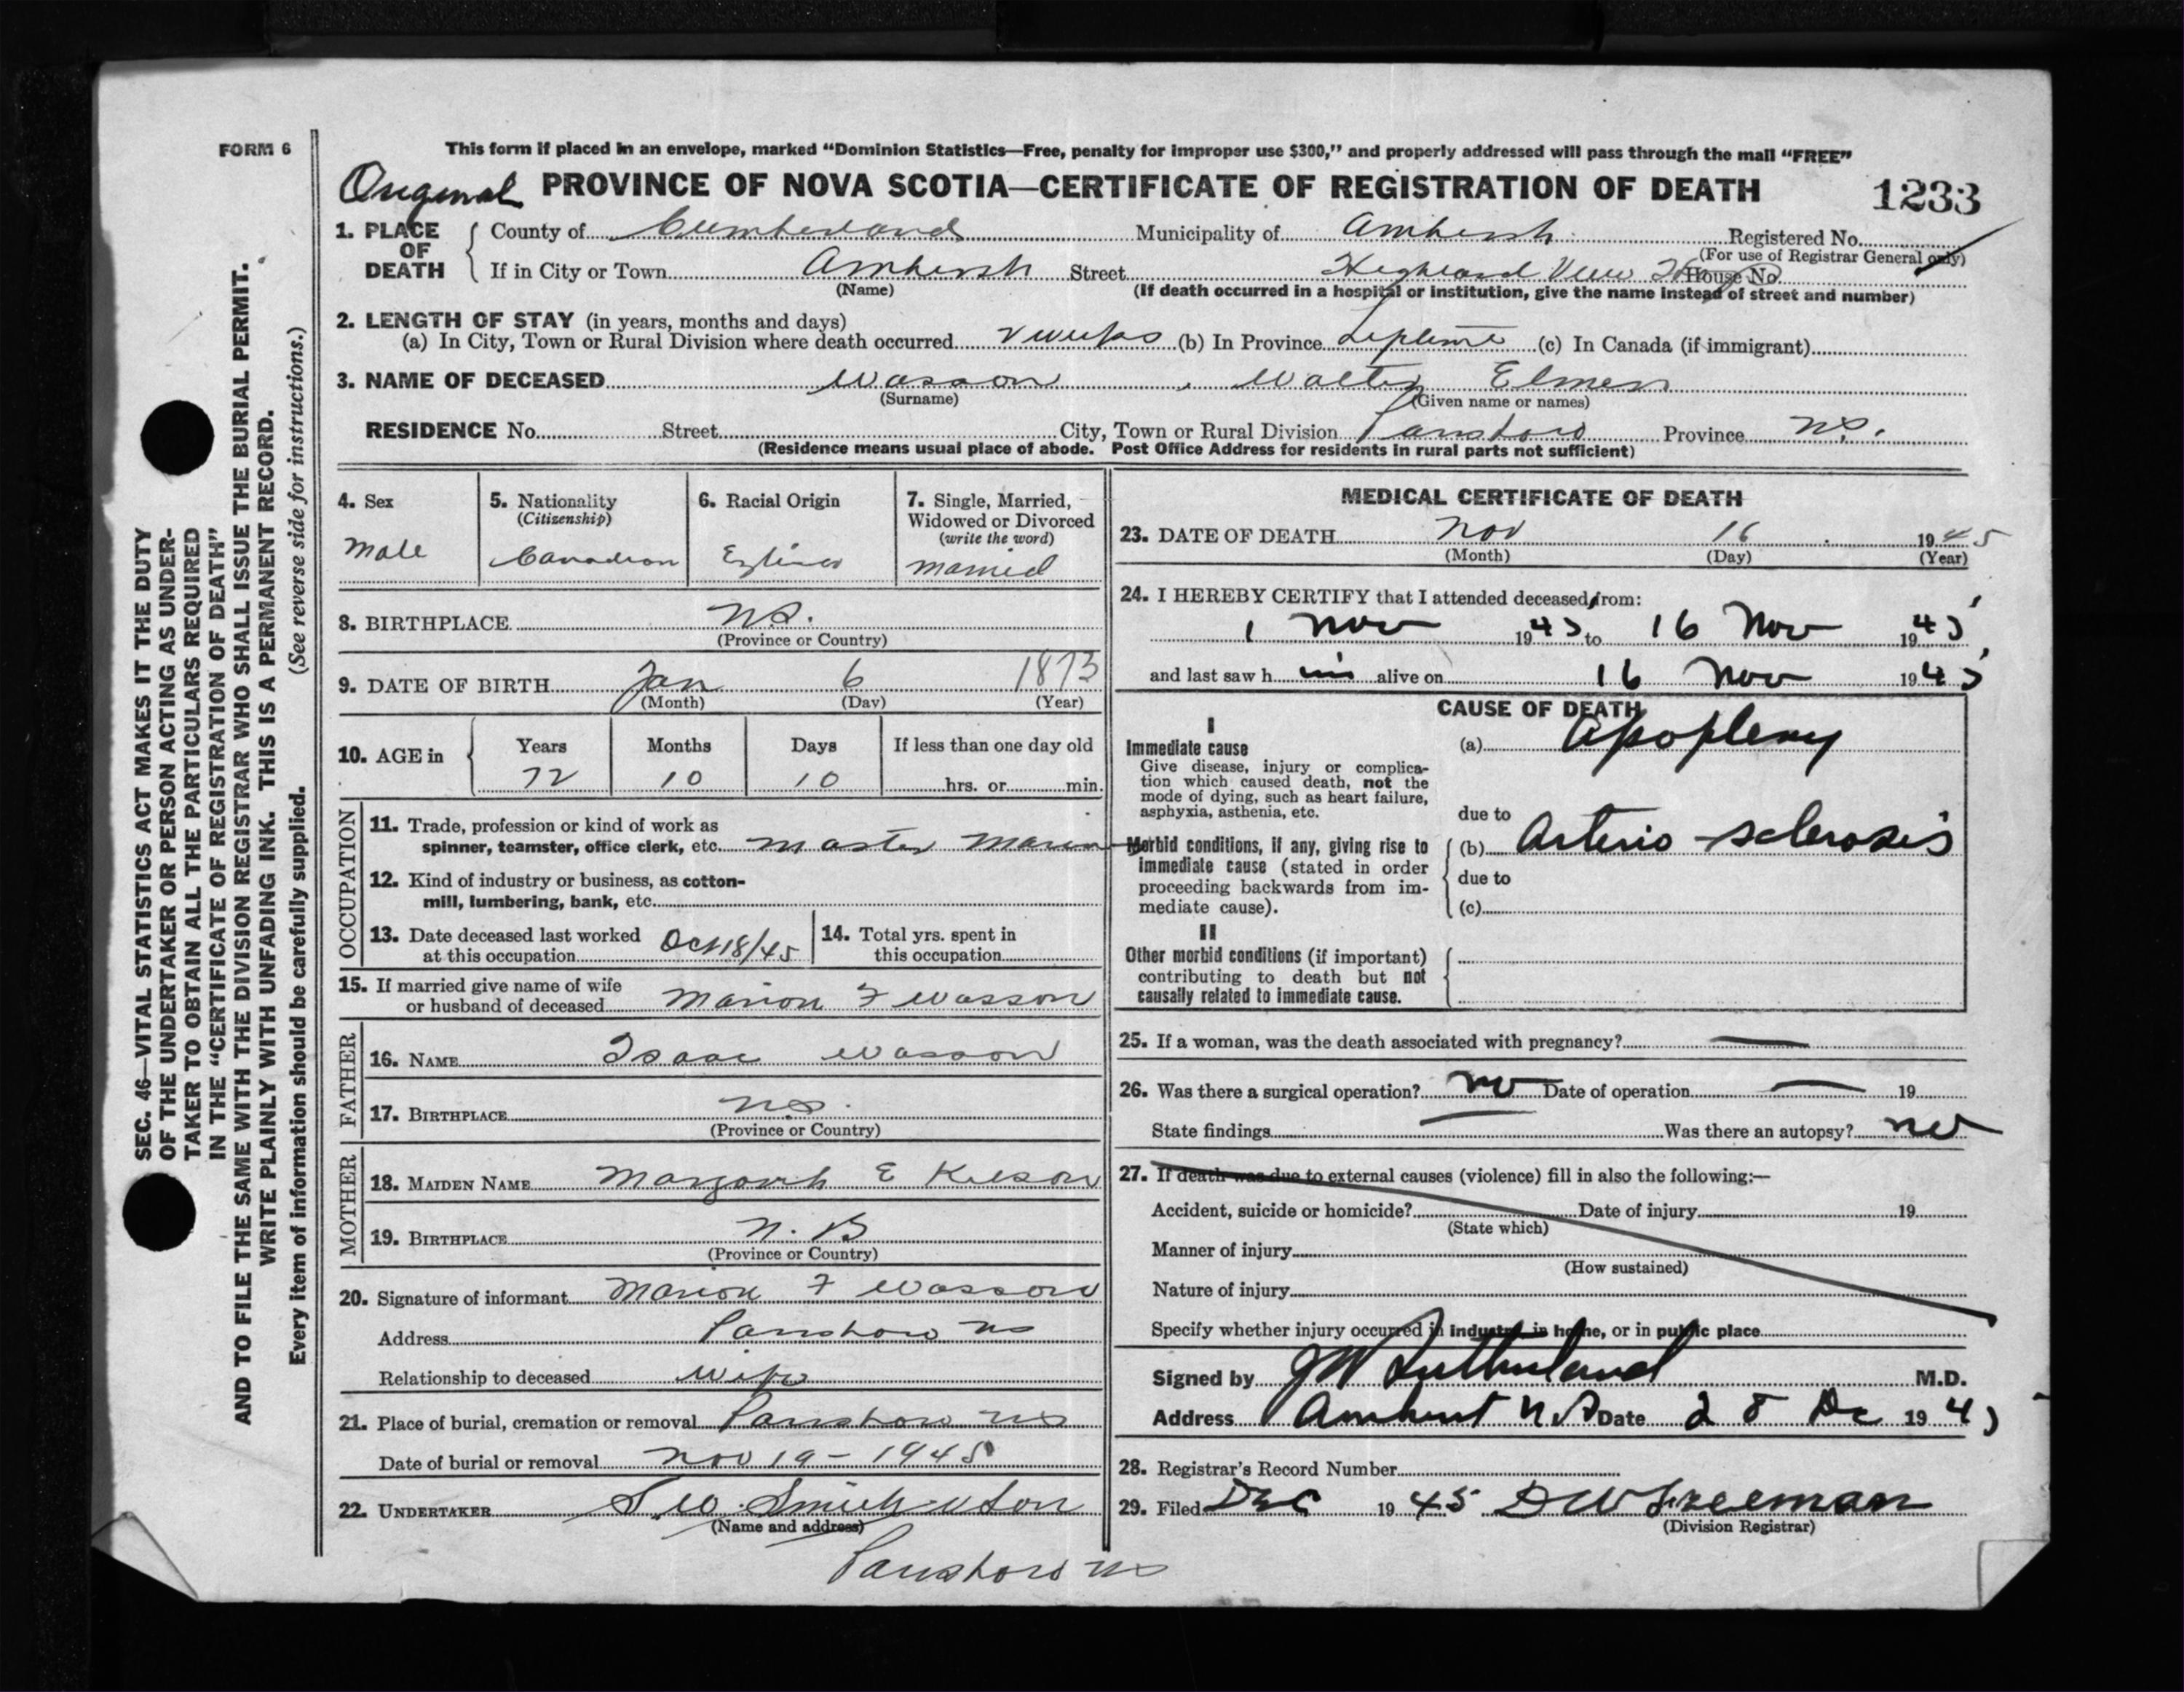 FORM 6
This form if placed in an envelope, marked "Dominion Statistics—Free, penalty for improper use $300," and properly addressed will pass through the mail "FREE"
Original PROVINCE OF NOVA SCOTIA—CERTIFICATE OF REGISTRATION OF DEATH 1233
1. PLACE OF DEATH County of Cumberland Municipality of Amherst Registered No.
(For use of Registrar General only)
If in City or Town Amherst Street Highland View House No.
(Name) (If death occurred in a hospital or institution, give the name instead of street and number)
2. LENGTH OF STAY (in years, months and days)
(a) In City, Town or Rural Division where death occurred 2 weeks (b) In Province Lifetime (c) In Canada (if immigrant)
3. NAME OF DECEASED Wasson, Walter Elmer
(Surname) (Given name or names)
RESIDENCE No. Street City, Town or Rural Division Parrsboro Province N.S.
(Residence means usual place of abode. Post Office Address for residents in rural parts not sufficient)
4. Sex
Male
5. Nationality
(Citizenship)
Canadian
6. Racial Origin
English
7. Single, Married,
Widowed or Divorced
(write the word)
married
8. BIRTHPLACE N.S.
(Province or Country)
9. DATE OF BIRTH Jan 6 1873
(Month) (Day) (Year)
10. AGE in Years Months Days If less than one day old
72 10 10 hrs. or min.
OCCUPATION
11. Trade, profession or kind of work as
spinner, teamster, office clerk, etc. Master Mariner
12. Kind of industry or business, as cotton-
mill, lumbering, bank, etc.
13. Date deceased last worked
at this occupation Oct 18/45
14. Total yrs. spent in
this occupation
15. If married give name of wife
or husband of deceased Marion F Wasson
FATHER
16. NAME Isaac Wasson
17. BIRTHPLACE N.S.
(Province or Country)
MOTHER
18. MAIDEN NAME Margaret E
19. BIRTHPLACE N. B
(Province or Country)
20. Signature of informant Marion F Wasson
Address Parrsboro NS
Relationship to deceased Wife
21. Place of burial, cremation or removal Parrsboro NS
Date of burial or removal Nov 19 - 1945
22. UNDERTAKER Smith & Son
(Name and address)
Parrsboro NS
MEDICAL CERTIFICATE OF DEATH
23. DATE OF DEATH Nov 16 1945
(Month) (Day) (Year)
24. I HEREBY CERTIFY that I attended deceased from:
1 Nov 1945 to 16 Nov 1945
and last saw h im alive on 16 Nov 1945
CAUSE OF DEATH
I
Immediate cause
Give disease, injury or complica-
tion which caused death, not the
mode of dying, such as heart failure,
asphyxia, asthenia, etc.
(a) Apoplexy
due to
Morbid conditions, if any, giving rise to
immediate cause (stated in order
proceeding backwards from im-
mediate cause).
(b) Arterio-sclerosis
due to
(c)
II
Other morbid conditions (if important)
contributing to death but not
causally related to immediate cause.
25. If a woman, was the death associated with pregnancy? —
26. Was there a surgical operation? no Date of operation — 19
State findings — Was there an autopsy? no
27. If death was due to external causes (violence) fill in also the following:—
Accident, suicide or homicide? Date of injury 19
(State which)
Manner of injury
(How sustained)
Nature of injury
Specify whether injury occurred in industry, in home, or in public place
Signed by JW Sutherland M.D.
Address Amherst N.S. Date 28 Dec 1945
28. Registrar's Record Number
29. Filed Dec 1945 DW Freeman
(Division Registrar)
SEC. 46—VITAL STATISTICS ACT MAKES IT THE DUTY
OF THE UNDERTAKER OR PERSON ACTING AS UNDER-
TAKER TO OBTAIN ALL THE PARTICULARS REQUIRED
IN THE "CERTIFICATE OF REGISTRATION OF DEATH"
AND TO FILE THE SAME WITH THE DIVISION REGISTRAR WHO SHALL ISSUE THE BURIAL PERMIT.
WRITE PLAINLY WITH UNFADING INK. THIS IS A PERMANENT RECORD.
Every item of information should be carefully supplied. (See reverse side for instructions.)